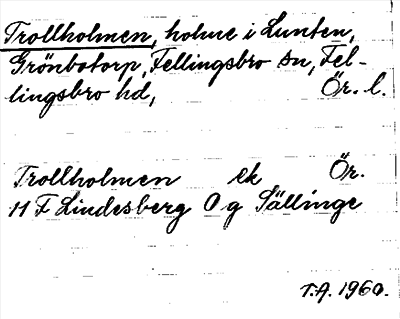 Trollholmen, holme i Lunten,
Grönbotorp, Fellingsbro sn, Fel-
lingsbro hd, Ör. l.
Trollholmen ek Ör.
11 F Lindesberg O g Sällinge
T.A. 1960.